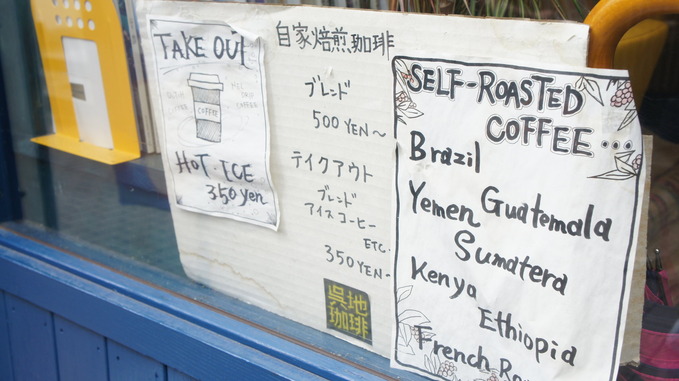 TAKE OUT
COFFEE
HOT・ICE
350yen
自家焙煎珈琲
ブレンド
500YEN〜
テイクアウト
ブレンド
アイスコーヒー
ETC.
350YEN〜
呉地
珈琲
SELF-ROASTED
COFFEE...
Brazil
Yemen Guatemala
Sumatera
Kenya
Ethiopia
French